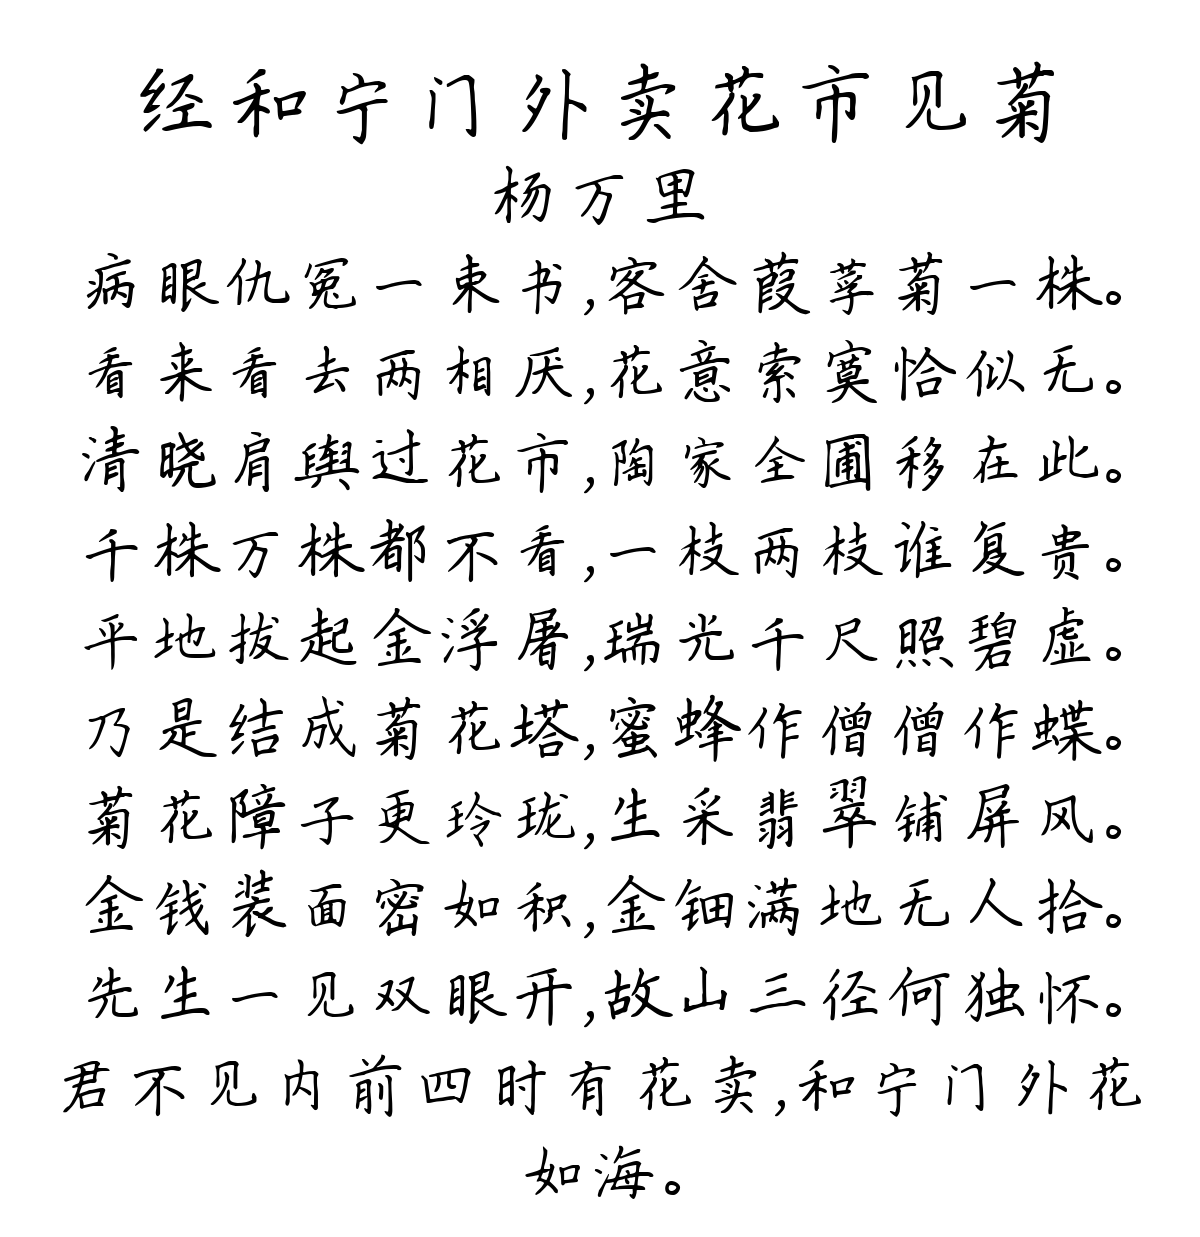 经和宁门外卖花市见菊
杨万里
病眼仇冤一束书,客舍葭莩菊一株。
看来看去两相厌,花意索寞恰似无。
清晓肩舆过花市,陶家全圃移在此。
千株万株都不看,一枝两枝谁复贵。
平地拔起金浮屠,瑞光千尺照碧虚。
乃是结成菊花塔,蜜蜂作僧僧作蝶。
菊花障子更玲珑,生采翡翠铺屏风。
金钱装面密如积,金钿满地无人拾。
先生一见双眼开,故山三径何独怀。
君不见内前四时有花卖,和宁门外花
如海。